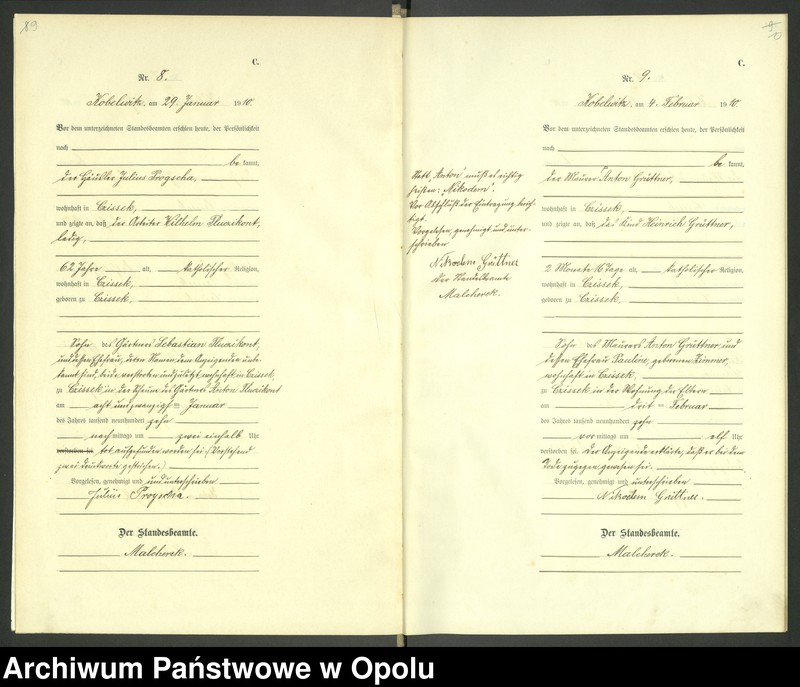 89
C.
Nr. 8.
Kobelwitz, am 29. Januar 1910.
Vor dem unterzeichneten Standesbeamten erschien heute, der Persönlichkeit
nach
be kannt,
der Häusler Julius Progscha,
wohnhaft in Czissek,
und zeigte an, daß der Arbeiter Wilhelm
ledig,
62 Jahre alt, katholischer Religion,
wohnhaft in Czissek,
geboren zu Czissek,
Sohn des Gärtners Sebastian
und dessen Ehefrau, deren Namen dem Anzeigenden unbe-
kannt sind, beide verstorben und zuletzt wohnhaft in Czissek,
zu Czissek, in der Scheune des Gärtners Anton
am acht und zwanzigsten Januar
des Jahres tausend neunhundert zehn
nach mittags um zwei einhalb Uhr
verstorben sei. tot aufgefunden worden sei. (Vorstehend
zwei Druckworte gestrichen.)
Vorgelesen, genehmigt und unterschrieben
Julius Progscha.
Der Standesbeamte.
Malcherek.
C.
Nr. 9.
Kobelwitz, am 4. Februar 1910.
Vor dem unterzeichneten Standesbeamten erschien heute, der Persönlichkeit
nach
be kannt,
der Maurer "Anton Grüttner,
wohnhaft in Czissek,
und zeigte an, daß das Kind Heinrich Grüttner,
2 Monate 16 Tage alt, katholischer Religion,
wohnhaft in Czissek,
geboren zu Czissek,
Sohn des Maurers Anton Grüttner und
dessen Ehefrau Pauline, geborenen Zimmer,
wohnhaft in Czissek,
zu Czissek, in der Wohnung der Eltern
am drit ten Februar
des Jahres tausend neunhundert zehn
vor mittags um elf Uhr
verstorben sei. Der Anzeigende erklärte, daß er bei dem
Tode zugegen gewesen sei.
Vorgelesen, genehmigt und unterschrieben
Nikodem Grüttner.
Der Standesbeamte.
Malcherek.
Statt „Anton“ muß es richtig
heißen: „Nikodem“.
Vor Abschluß der Eintragung berich-
tigt.
Vorgelesen, genehmigt und unter-
schrieben
Nikodem Grüttner
Der Standesbeamte
Malcherek.
Archiwum Państwowe w Opolu